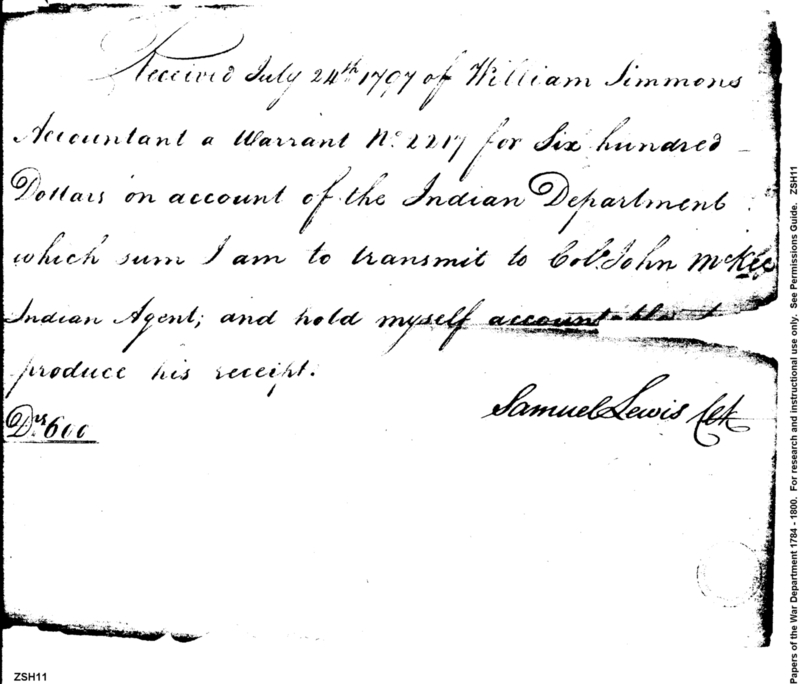 Received July 24th 1797 of William Simmons
Accountant a Warrant No. 2217 for Six hundred
Dollars on account of the Indian Department
which sum I am to transmit to Colo. John McKee
Indian Agent; and hold myself accountable to
produce his receipt.
Samuel Lewis Clk
Drs 600
ZSH11
Papers of the War Department 1784 - 1800. For research and instructional use only. See Permissions Guide. ZSH11